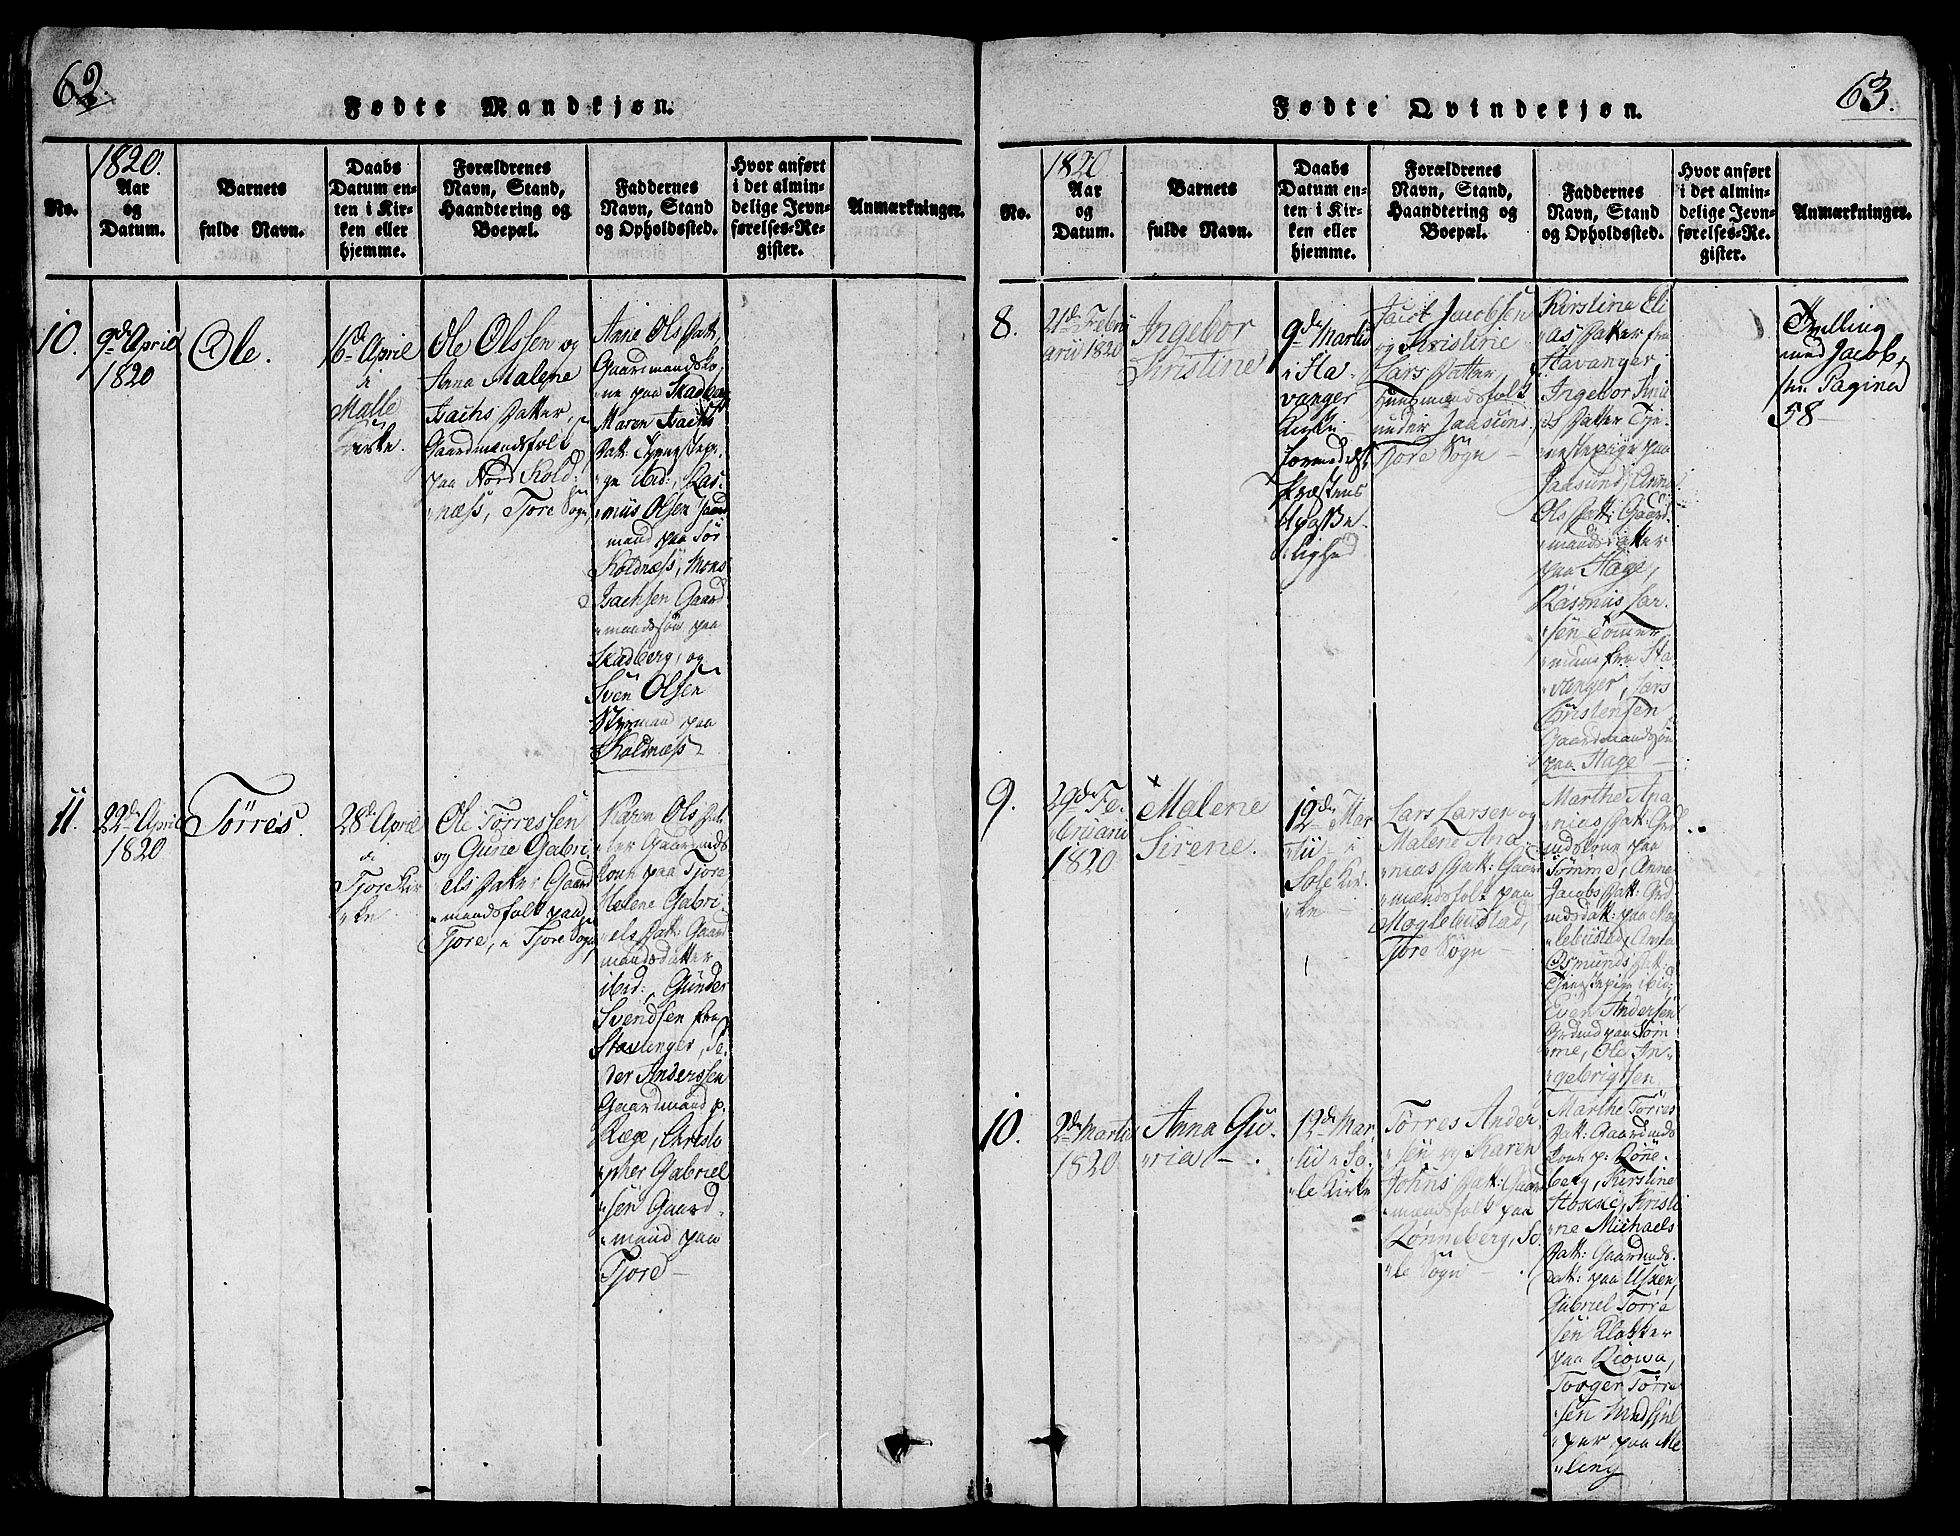 62.
Fødte Mandkjøn.
No.
1820.
Aar
og
Datum.
Barnets
fulde Navn.
Daabs
Datum en-
ten i Kir-
ken eller
hjemme.
Forældrenes
Navn, Stand,
Haandtering og
Boepæl.
Faddernes
Navn, Stand
og Opholdssted.
Hvor anført
i det almin-
delige Jevn-
førelses-Re-
gister.
Anmærkninger.
10.
9de April
1820
Ole.
16de April
i
Malle
Kirke.
Ole Olssen og
Anna Malene
Isachs Datter,
Gaardmandsfolk
paa Nord Kold-
næss, Tjore Sogn,
Anne Ols Datt,
Gaardmandsko-
ne paa Skadberg
Maren Isachs
Datt: Tjenestepi-
ge ibid:, Ras-
mus Olsen Gaard
mand paa Sør
Koldnæss, Mons
Isachsen Gaard
mandssøn paa
Skadberg, og
Sven Olsen
Styrmand paa
Koldnæss
11.
22de April
1820
Tørres.
28de April
i
Tjore Kir
ke
Ole Tørressen
og Gune Gabri
els Datter Gaard
mandsfolk paa
Tjore, i Tjore Sogn,
Karen Ols Dat-
ter Gaardmands
kone paa Tjore
Helene Gabri
els Datt: Gaard
mandsdatter
ibid:, Gunder
Svendsen fra
Stavanger, Pe-
der Anderssen
Gaardmand p.
Ræge, Christo
pher Gabriel
sen Gaard-
mand paa
Tjore
63.
Fødte Qvindekjøn.
No.
1820
Aar
og
Datum.
Barnets
fulde Navn.
Daabs
Datum en-
ten i Kir-
ken eller
hjemme.
Forældrenes
Navn, Stand,
Haandtering og
Boepæl.
Faddernes
Navn, Stand
og Opholdssted.
Hvor anført
i det almin-
delige Jevn-
førelses-Re-
gister.
Anmærkninger.
8.
21de Febru
arii 1820
Ingebor
Kristine
9de Martii
i Sta-
vanger
Kirke
formedelst
Præstens
Upasse-
lighed
Jacob Jacobsen
og Kristine
Lars Datter
Huusmandsfolk
under Jaasund,
Tjore Sogn
Kirstina Eli
as Datter fra
Stavanger
Ingebor Knu
ds Datter Tje-
nestepige paa
Jaasund, Anne
Ols Datt: Gaard-
mandsdatter
paa Hage,
Rasmus Lar-
sen Tømmer
mand fra Sta
vanger, Lars
Christensen
Gaardmandssøn
paa Hage
Tvilling
med Jacob,
see Pagina
58
9.
29de Fe-
bruarii
1820
Malene
Sirene.
12de Mar
tii i
Sole Kir-
ke
Lars Larsen og
Malene Ana
nias Datt: Gaard
mandsfolk paa
Moglebustad,
Tjore Sogn
Marthe Ana
nias Datt: Grd
mdskone paa
Sømme, Anne
Jacobs Datt: Grd
mdsdatt: paa Mog
lebustad, Anna
Osmunds Datt:
Tjenstepige ibid,
Even Andersen
Grdmd paa Søm
me, Ole In-
gebrigtsen
10.
2de Martii
1820
Anna Gu-
ria
12de Mar-
tii i So-
le Kirke
Tørres Ander
sen og Karen
Johns Datt: Gaard
mandsfolk paa
Rønneberg, So-
le Sogn
Marthe Tørres
Datt: Gaardmds
kone p: Rønne-
berg, Kirstine
Stokke, Kristi
ne Michaels
Datt: Gaardmds-
datt: paa Usken,
Gabriel Tørre
sen Klokker
paa
Torger Tørre
sen
per paa Me
ling